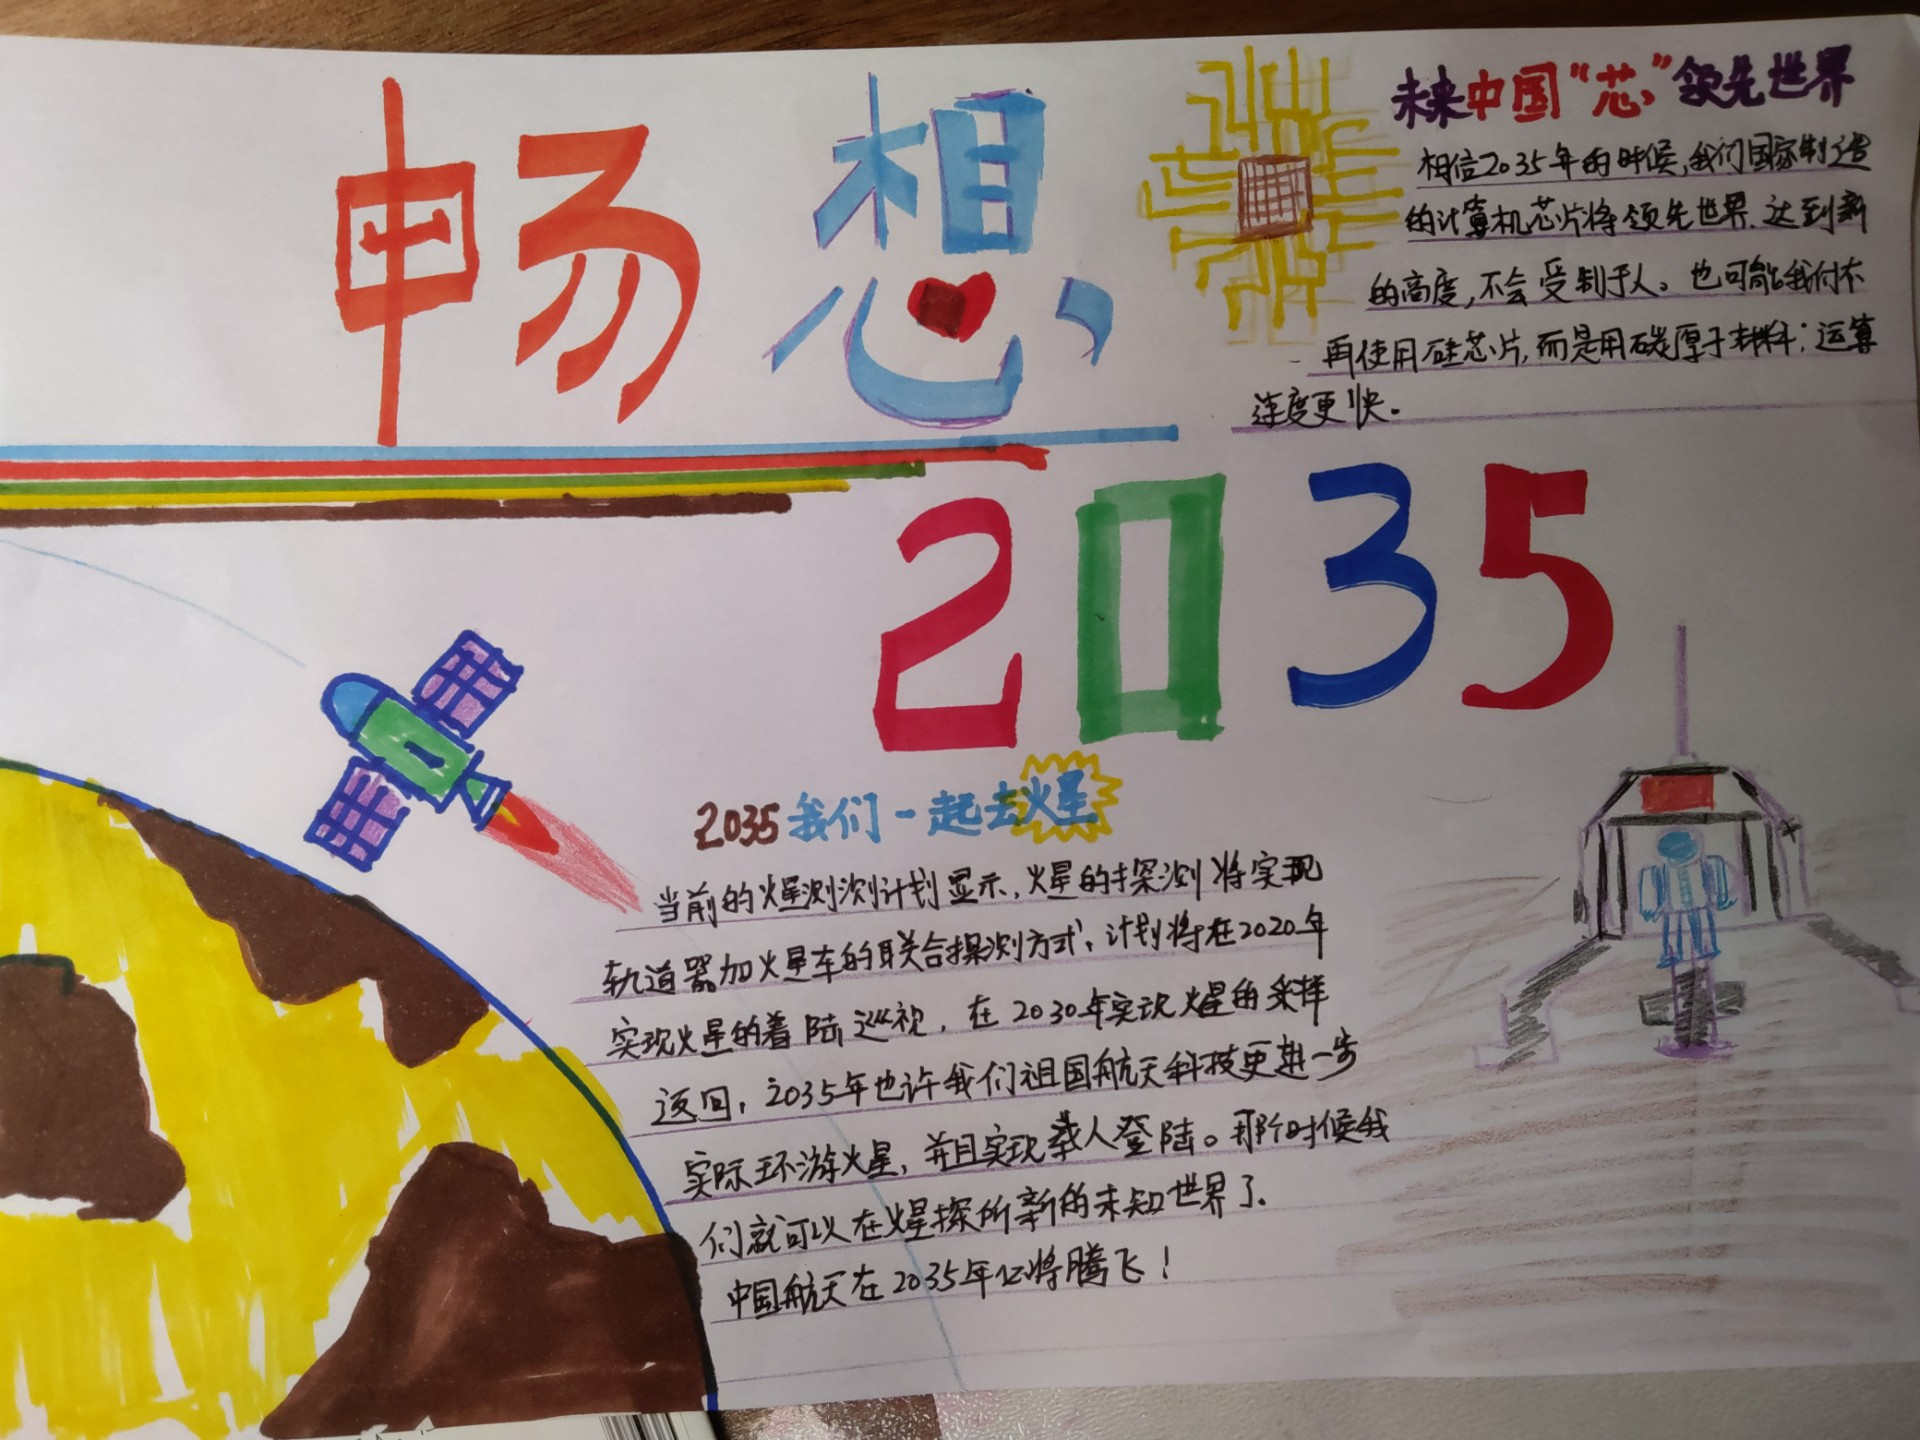 畅想
未来中国“芯”领先世界
相信2035年的时候,我们国家制造
的计算机芯片将领先世界.达到新
的高度,不会受制于人。也可能我们不
再使用硅芯片,而是用碳原子材料;运算
速度更快。
2035
2035我们一起去火星
当前的火星测测计划显示,火星的探测将实现
轨道器加火星车的联合探测方式,计划将在2020年
实现火星的着陆巡视,在2030年实现火星的采样
返回,2035年也许我们祖国航天科技更进一步
实际环游火星,并且实现载人登陆。那个时候我
们就可以在火星探所新的未知世界了.
中国航天在2035年必将腾飞!